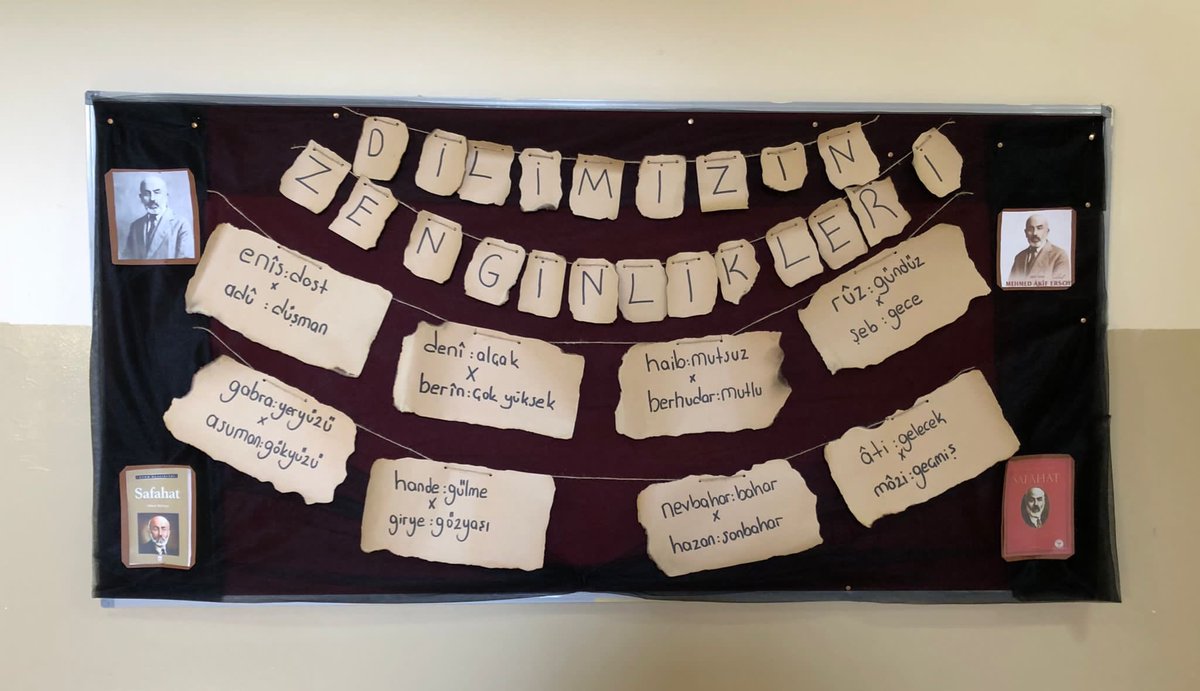 DİLİMİZİN
ZENGİNLİKLERİ
enîs:dost
x
adû:düşman
denî:alçak
x
berîn:çok yüksek
haib:mutsuz
x
berhudar:mutlu
rûz:gündüz
x
şeb:gece
gabra:yeryüzü
x
asuman:gökyüzü
hande:gülme
x
girye:gözyaşı
nevbahar:bahar
x
hazan:sonbahar
âti:gelecek
x
mâzi:geçmiş
MEHMED ÂKİF ERSOY
Safahat
SAFAHAT